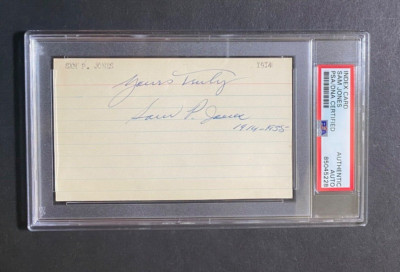 SAM P. JONES 1914
Yours Truly
Sam P. Jones
1914-1935
INDEX CARD
SAM JONES
PSA/DNA CERTIFIED
AUTHENTIC
AUTO
PSA
85045228